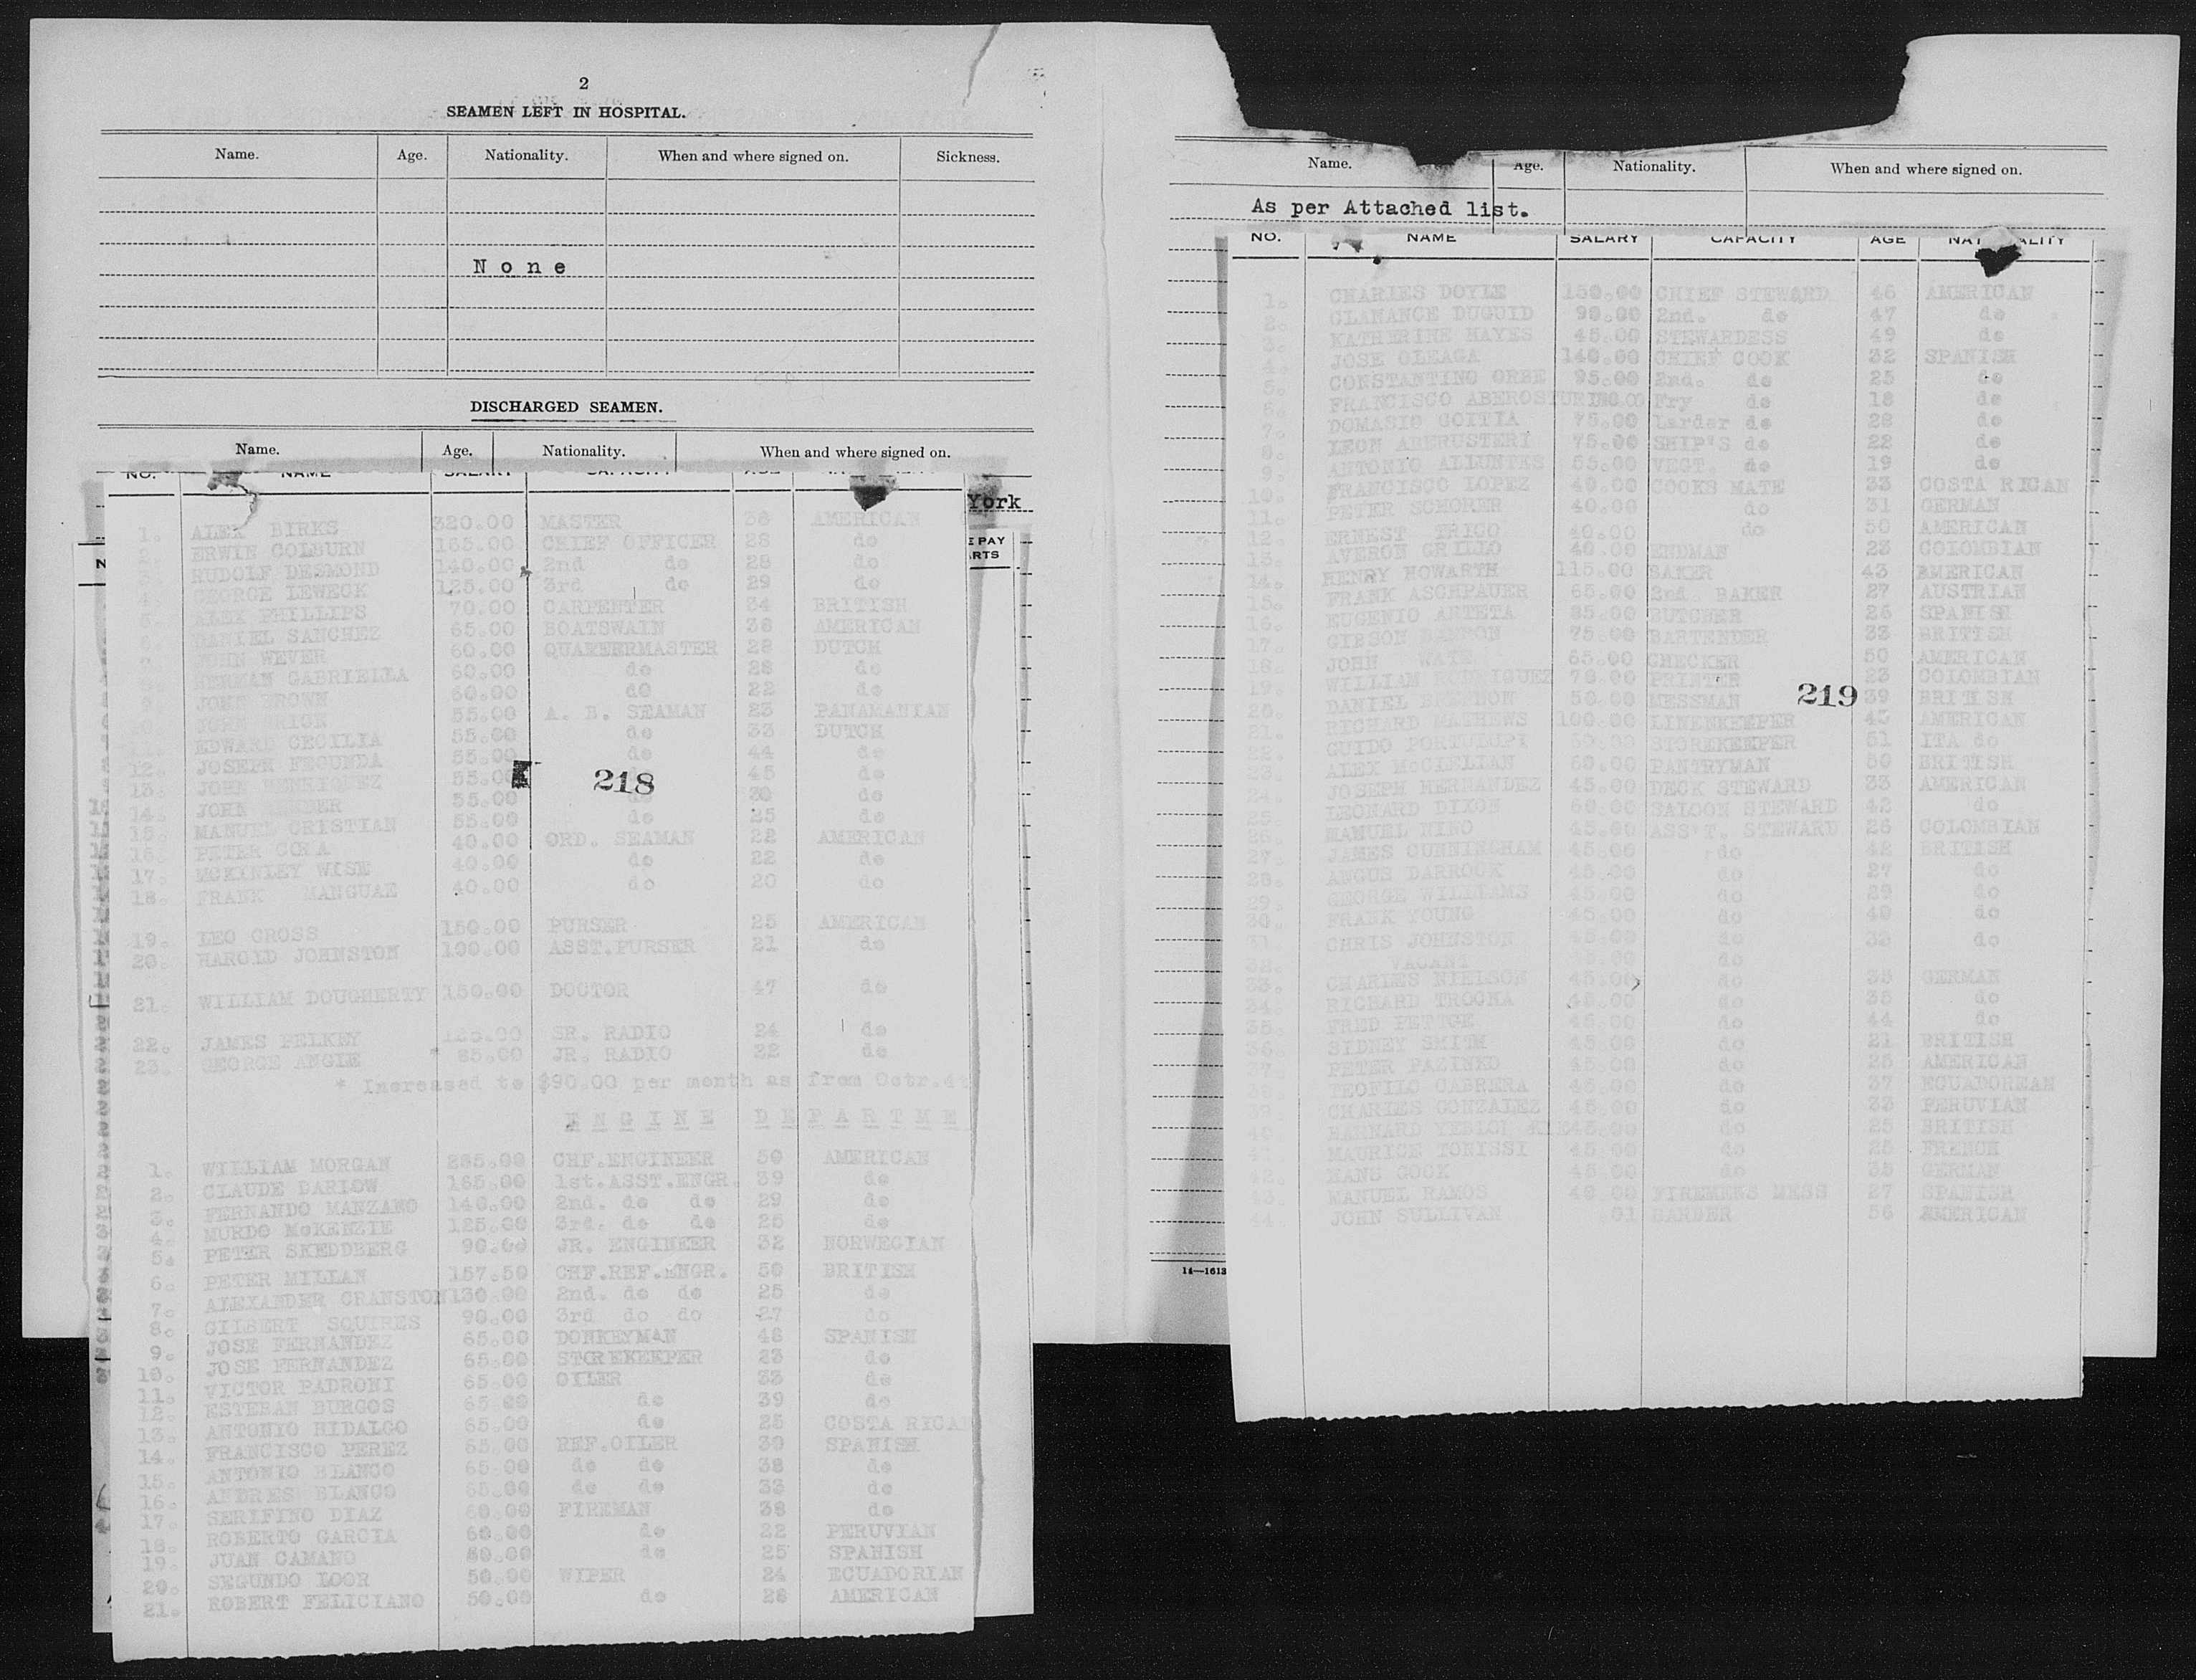 2
SEAMEN LEFT IN HOSPITAL.
Name. Age. Nationality. When and where signed on. Sickness.
None
DISCHARGED SEAMEN.
Name. Age. Nationality. When and where signed on.
NO. NAME SALARY CAPACITY
York
E PAY
RTS
1. ALEX BIRKS 320.00 MASTER 38 AMERICAN
2. ERWIN COLBURN 165.00 CHIEF OFFICER 28 do
3. RUDOLF DESMOND 140.00 2nd do 28 do
4. GEORGE LEWECK 125.00 3rd do 29 do
5. ALEX PHILLIPS 70.00 CARPENTER 34 BRITISH
6. DANIEL SANCHEZ 65.00 BOATSWAIN 38 AMERICAN
7. JOHN WEVER 60.00 QUARTERMASTER 28 DUTCH
8. HERMAN GABRIELLA 60.00 do 28 do
9. JOHN BROWN 60.00 do 22 do
JOHN BRION 55.00 A. B. SEAMAN 23 PANAMANIAN
EDWARD CECILIA 55.00 do 33 DUTCH
12. JOSEPH FECUNDA 55.00 do 44 do
13. JOHN HENRIQUEZ 55.00 45 do
14. JOHN 55.00 do 30 do
15. MANUEL CRISTIAN 55.00 do 25 do
16. PETER 40.00 ORD. SEAMAN 22 AMERICAN
17. MCKINLEY WISE 40.00 do 22 do
18. FRANK MANGUAL 40.00 do 20 do
218
19. LEO GROSS 150.00 PURSER 25 AMERICAN
20. HAROLD JOHNSTON 100.00 ASST.PURSER 21 do
21. WILLIAM DOUGHERTY 150.00 DOCTOR 47 do
22. JAMES PELKEY SR. RADIO 24 do
23. GEORGE ANGIE * 85.00 JR. RADIO 22 do
* Increased to $90.00 per month as from Octr.4t
ENGINE DEPARTME
1. WILLIAM MORGAN 285.00 CHF.ENGINEER 50 AMERICAN
2. CLAUDE BARLOW 165.00 1st.ASST.ENGR. 39 do
3. FERNANDO MANZANO 140.00 2nd. do do 29 do
4. MURDO McKENZIE 125.00 3rd. do do 25 do
5. PETER SKEDDBERG 90.00 JR. ENGINEER 32 NORWEGIAN
6. PETER MILLAN 157.50 CHF.REF.ENGR. 50 BRITISH
7. ALEXANDER CRANSTON 130.00 2nd. do do 25 do
8. GILBERT SQUIRES 90.00 3rd do do 27 do
9. JOSE FERNANDEZ 65.00 DONKEYMAN 48 SPANISH
10. JOSE FERNANDEZ 65.00 STOREKEEPER 23 do
11. VICTOR PADRONI 65.00 OILER 33 do
12. ESTEBAN BURGOS 65.00 do 39 do
13. ANTONIO HIDALGO 65.00 do 25 COSTA RICA
14. FRANCISCO PEREZ 65.00 REF.OILER 30 SPANISH
15. ANTONIO BLANCO 65.00 do do 38 do
16. ANDRES BLANCO 65.00 do do 33 do
17. SERIFINO DIAZ 60.00 FIREMAN 38 do
18. ROBERTO GARCIA 60.00 do 22 PERUVIAN
19. JUAN CAMANO 60.00 do 25 SPANISH
20. SEGUNDO LOOR 50.00 WIPER 24 ECUADORIAN
21. ROBERT FELICIANO 50.00 do 28 AMERICAN
Name. Age. Nationality. When and where signed on.
As per Attached list.
NO. NAME SALARY CAPACITY AGE NATIONALITY
1. CHARLES DOYLE 150.00 CHIEF STEWARD 46 AMERICAN
2. CLARANCE DUGUID 90.00 2nd. do 47 do
3. KATHERINE HAYES 45.00 STEWARDESS 49 do
4. JOSE OLEAGA 140.00 CHIEF COOK 32 SPANISH
5. CONSTANTINO ORBE 95.00 2nd. do 25 do
6. FRANCISCO Fry do 18 do
7. DOMASIO GOITIA 75.00 Larder do 28 do
8. LEON ABERUSTERI 75.00 SHIP'S do 22 do
9. ANTONIO 55.00 VEGT. do 19 do
10. FRANCISCO LOPEZ COOKS MATE 33 COSTA RICAN
11. PETER SCHORER 40.00 do 31 GERMAN
12. ERNEST TRIGO 40.00 do 50 AMERICAN
13. AVERON GRILLO 40.00 23 COLOMBIAN
14. HENRY HOWARTH 115.00 BAKER 43 AMERICAN
15. FRANK ASCHPAUER 65.00 2nd. BAKER 27 AUSTRIAN
16. EUGENIO ARTETA 85.00 BUTCHER 26 SPANISH
17. GIBSON 75.00 BARTENDER 33 BRITISH
18. JOHN 65.00 CHECKER 50 AMERICAN
19. WILLIAM RODRIGUEZ 70.00 PRINTER 23 COLOMBIAN
20. DANIEL 50.00 MESSMAN 39 BRITISH
219
21. RICHARD MATHEWS 100.00 LINENKEEPER AMERICAN
22. GUIDO PORTULUPI STOREKEEPER 51 ITA do
23. ALEX McCLELLAN 60.00 PANTRYMAN 50 BRITISH
24. JOSEPH HERNANDEZ 45.00 DECK STEWARD 33 AMERICAN
25. LEONARD DIXON 60.00 SALOON STEWARD 42 do
26. MANUEL NINO 45.00 ASS'T. STEWARD 26 COLOMBIAN
27. JAMES CUNNINGHAM 45.00 do 42 BRITISH
28. ANGUS DARROCK 45.00 do 27 do
29. GEORGE WILLIAMS 45.00 do 29 do
30. FRANK YOUNG 45.00 do 40 do
31. CHRIS JOHNSTON 45.00 do do
32. VACANT do
33. CHARLES NIELSON 45.00 do 35 GERMAN
34. RICHARD TROCHA 45.00 do 35 do
35. FRED 45.00 do 44 do
36. SIDNEY SMITH 45.00 do 21 BRITISH
37. PETER 45.00 do 25 AMERICAN
TEOFILO CABRERA 45.00 do 37 ECUADOREAN
39. CHARLES GONZALEZ 45.00 do 33 PERUVIAN
40. BARNARD 45.00 do 25 BRITISH
41. MAURICE TONISSI 45.00 do 25 FRENCH
42. HANS COCK 45.00 do 35 GERMAN
43. MANUEL RAMOS 40.00 FIREMENS MESS 27 SPANISH
44. JOHN SULLIVAN .01 BARBER 56 AMERICAN
14—1613